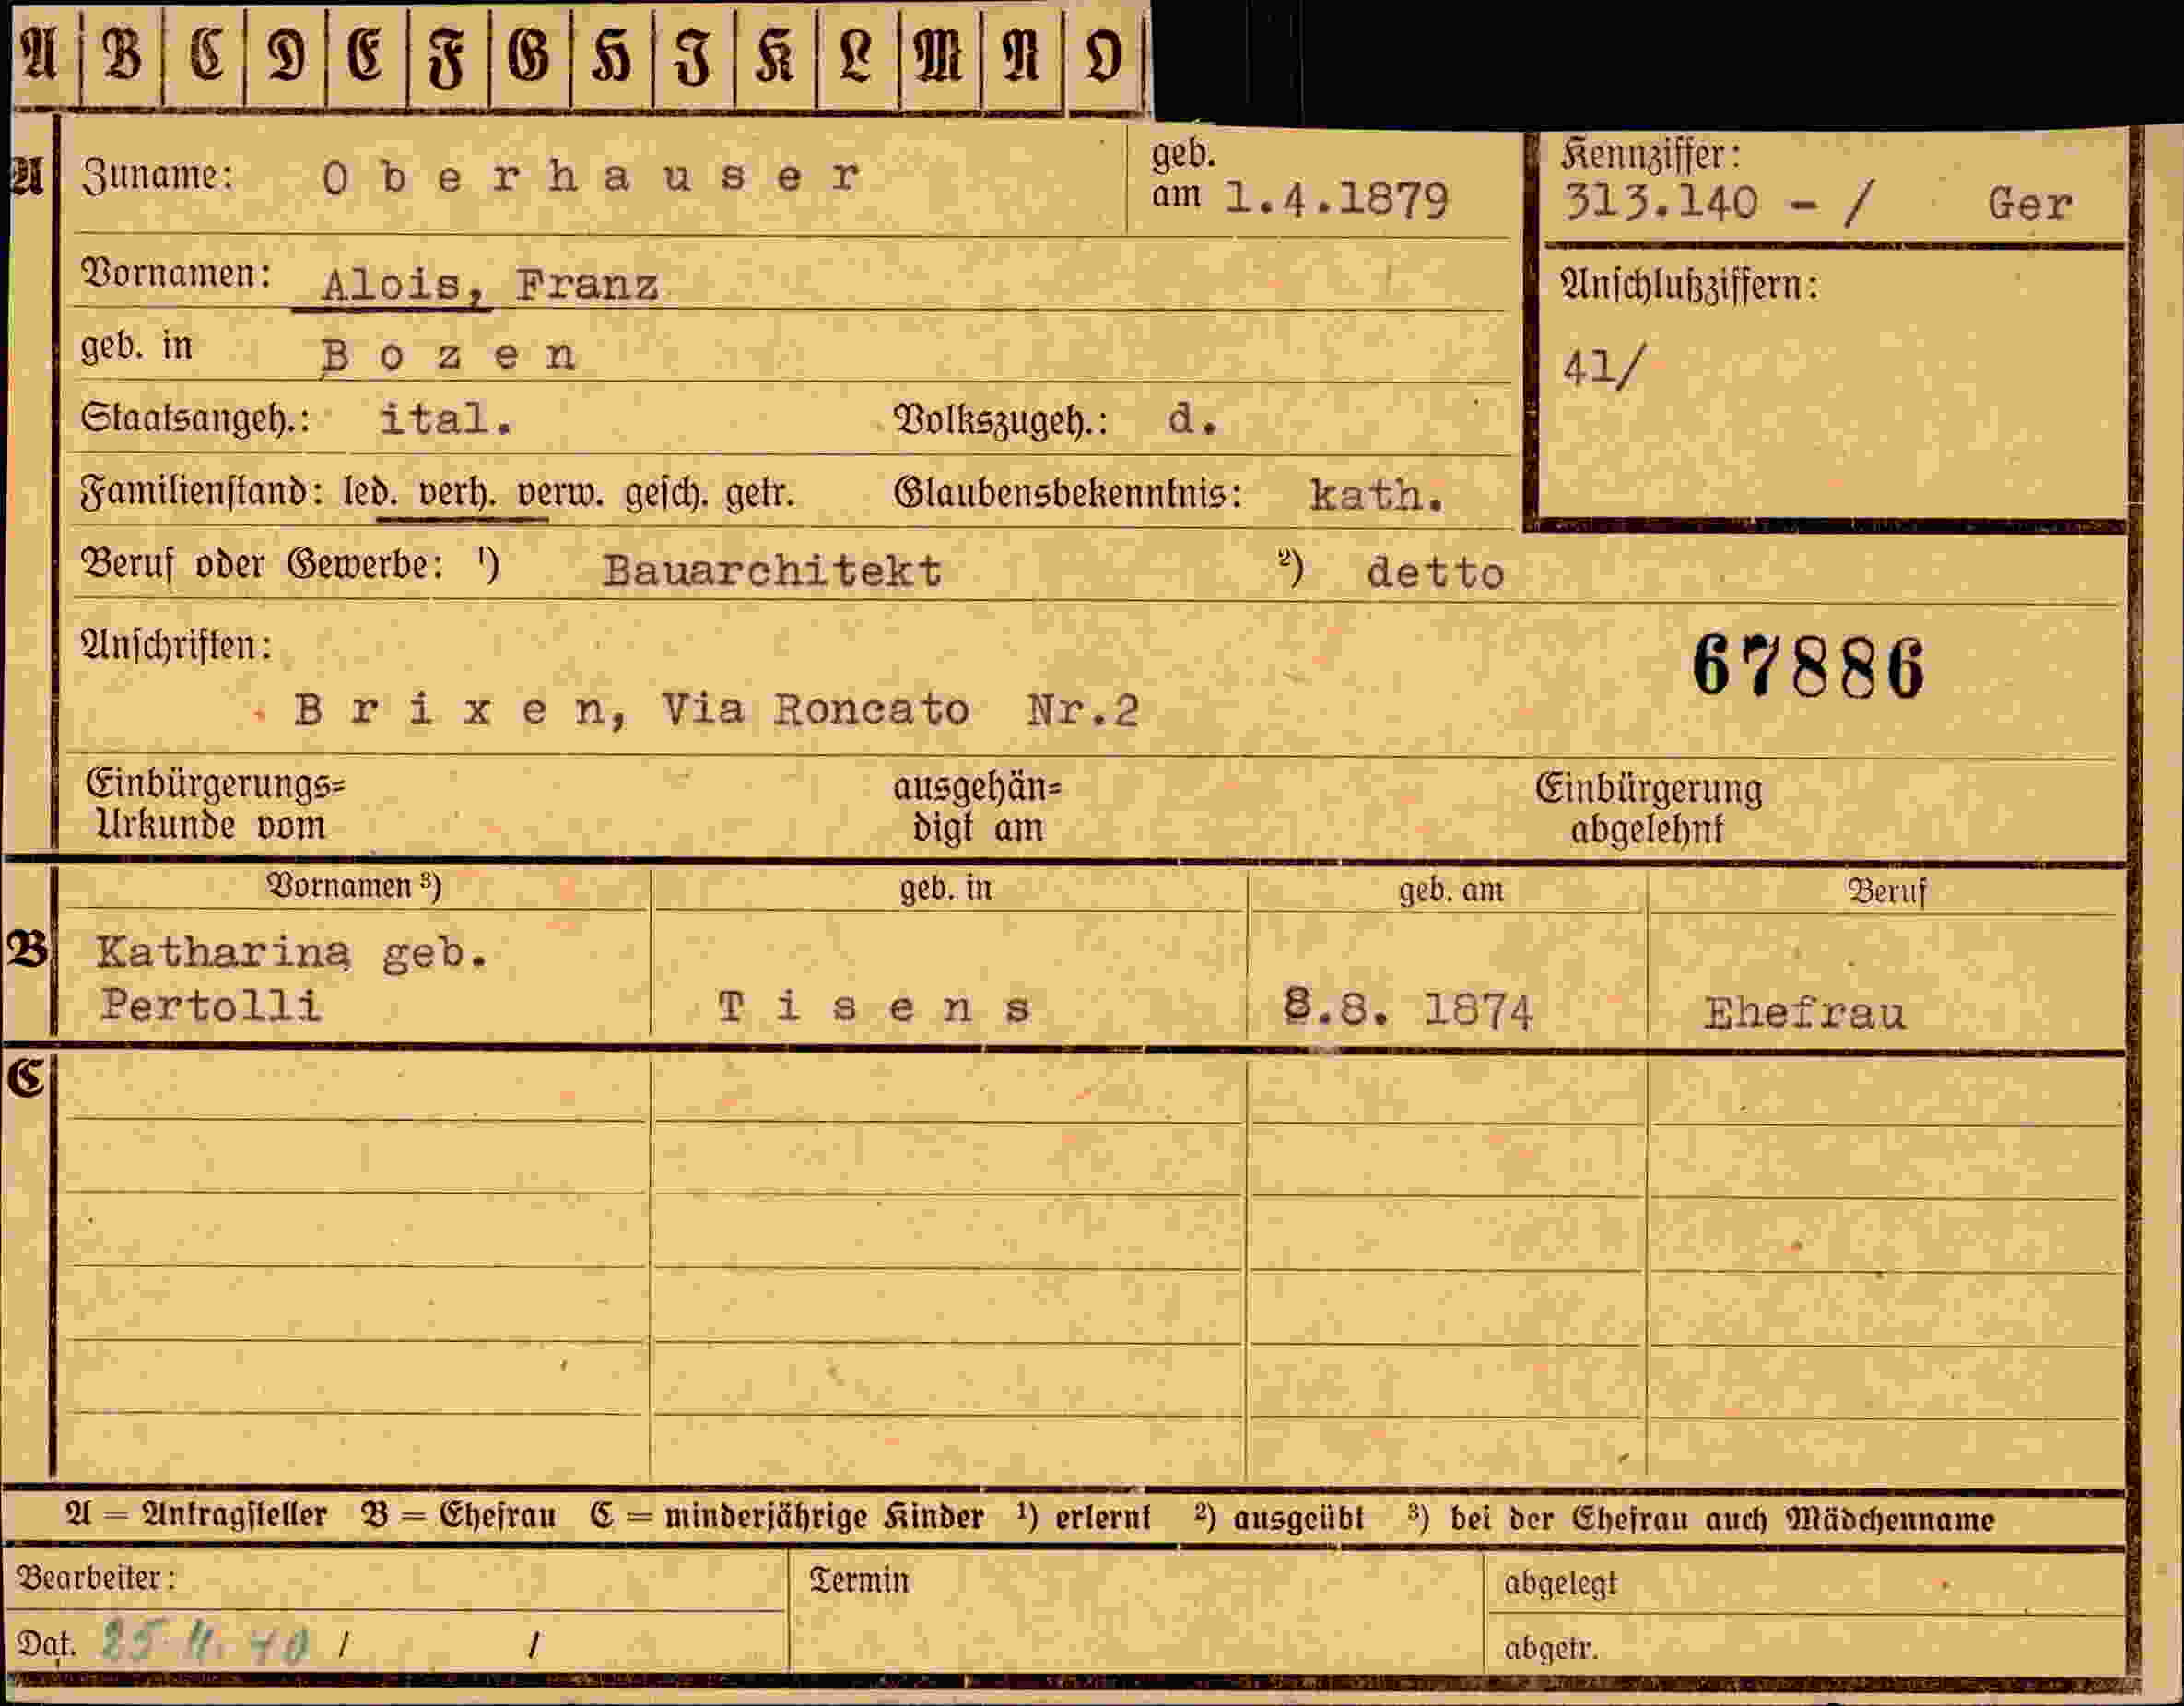 A B C D E F G H I K L M N O
A Zuname: Oberhauser geb. am 1.4.1879 Kennziffer: 313.140 - / Ger
Vornamen: Alois, Franz Anschlußziffern:
geb. in Bozen 41/
Staatsangeh.: ital. Volkszugeh.: d.
Familienstand: led. verh. verw. gesch. getr. Glaubensbekenntnis: kath.
Beruf oder Gewerbe: ¹) Bauarchitekt ²) detto
Anschriften: 67886
Brixen, Via Roncato Nr.2
Einbürgerungs= ausgehän= Einbürgerung
Urkunde vom digt am abgelehnt
Vornamen ³) geb. in geb. am Beruf
B Katharina geb.
Pertolli Tisens 8.8. 1874 Ehefrau
C
A = Antragsteller B = Ehefrau C = minderjährige Kinder ¹) erlernt ²) ausgeübt ³) bei der Ehefrau auch Mädchenname
Bearbeiter: Termin abgelegt
Dat. 25.11.40 / / abgetr.